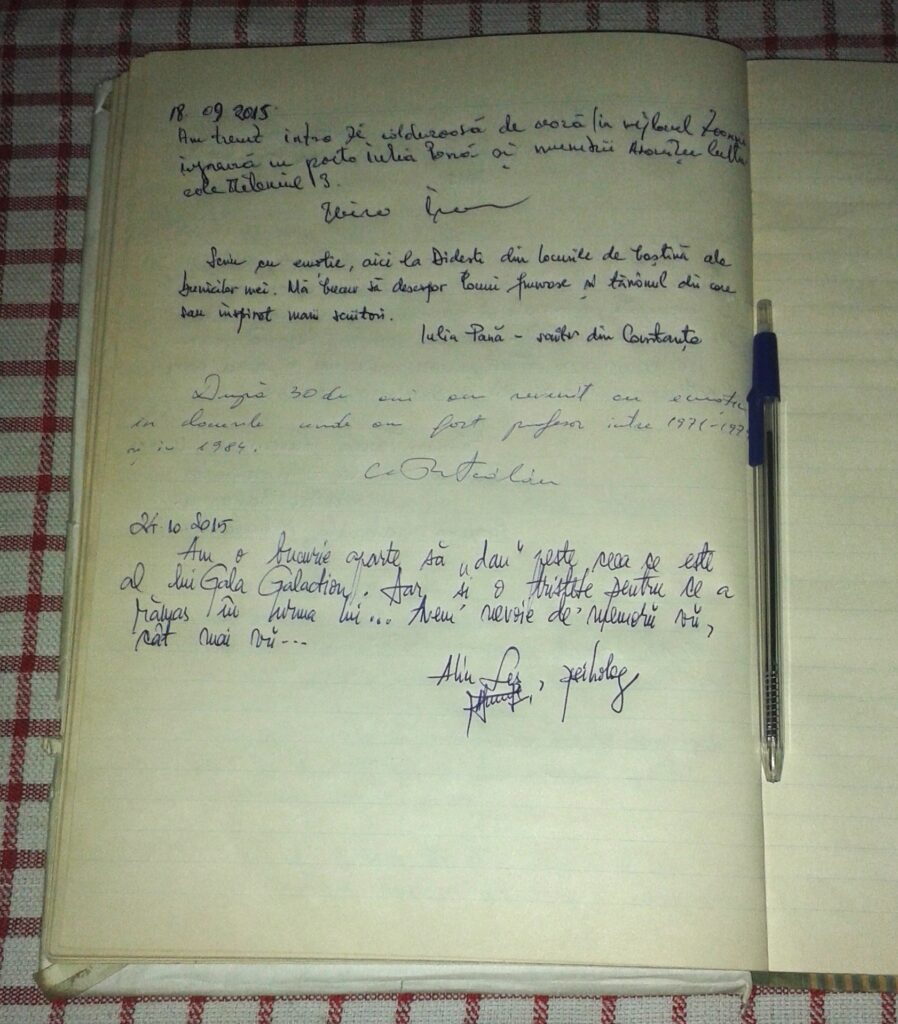 18. 09 2015.
Am trecut intro zi călduroasă de vară în
cu Iulia Pană și
Mileniul 3.
Scriu cu emoție, aici la Didești din locurile de baștină ale
bunicilor mei. Mă bucur să descopăr lumi frumoase și tărâmul din care
sau inspirat marii scriitori.
Iulia Pană - scriitor din Constanța
După 30 de ani am revenit cu emoție
în locurile unde am fost profesor intre 1971-197
și in 1984.
24.10 2015
Am o bucurie aparte să „dau" peste ceea ce este
al lui Gala Galaction. Dar și o tristețe pentru ce a
rămas în urma lui... Avem nevoie de memorii vii,
cât mai vii...
Alin , psiholog